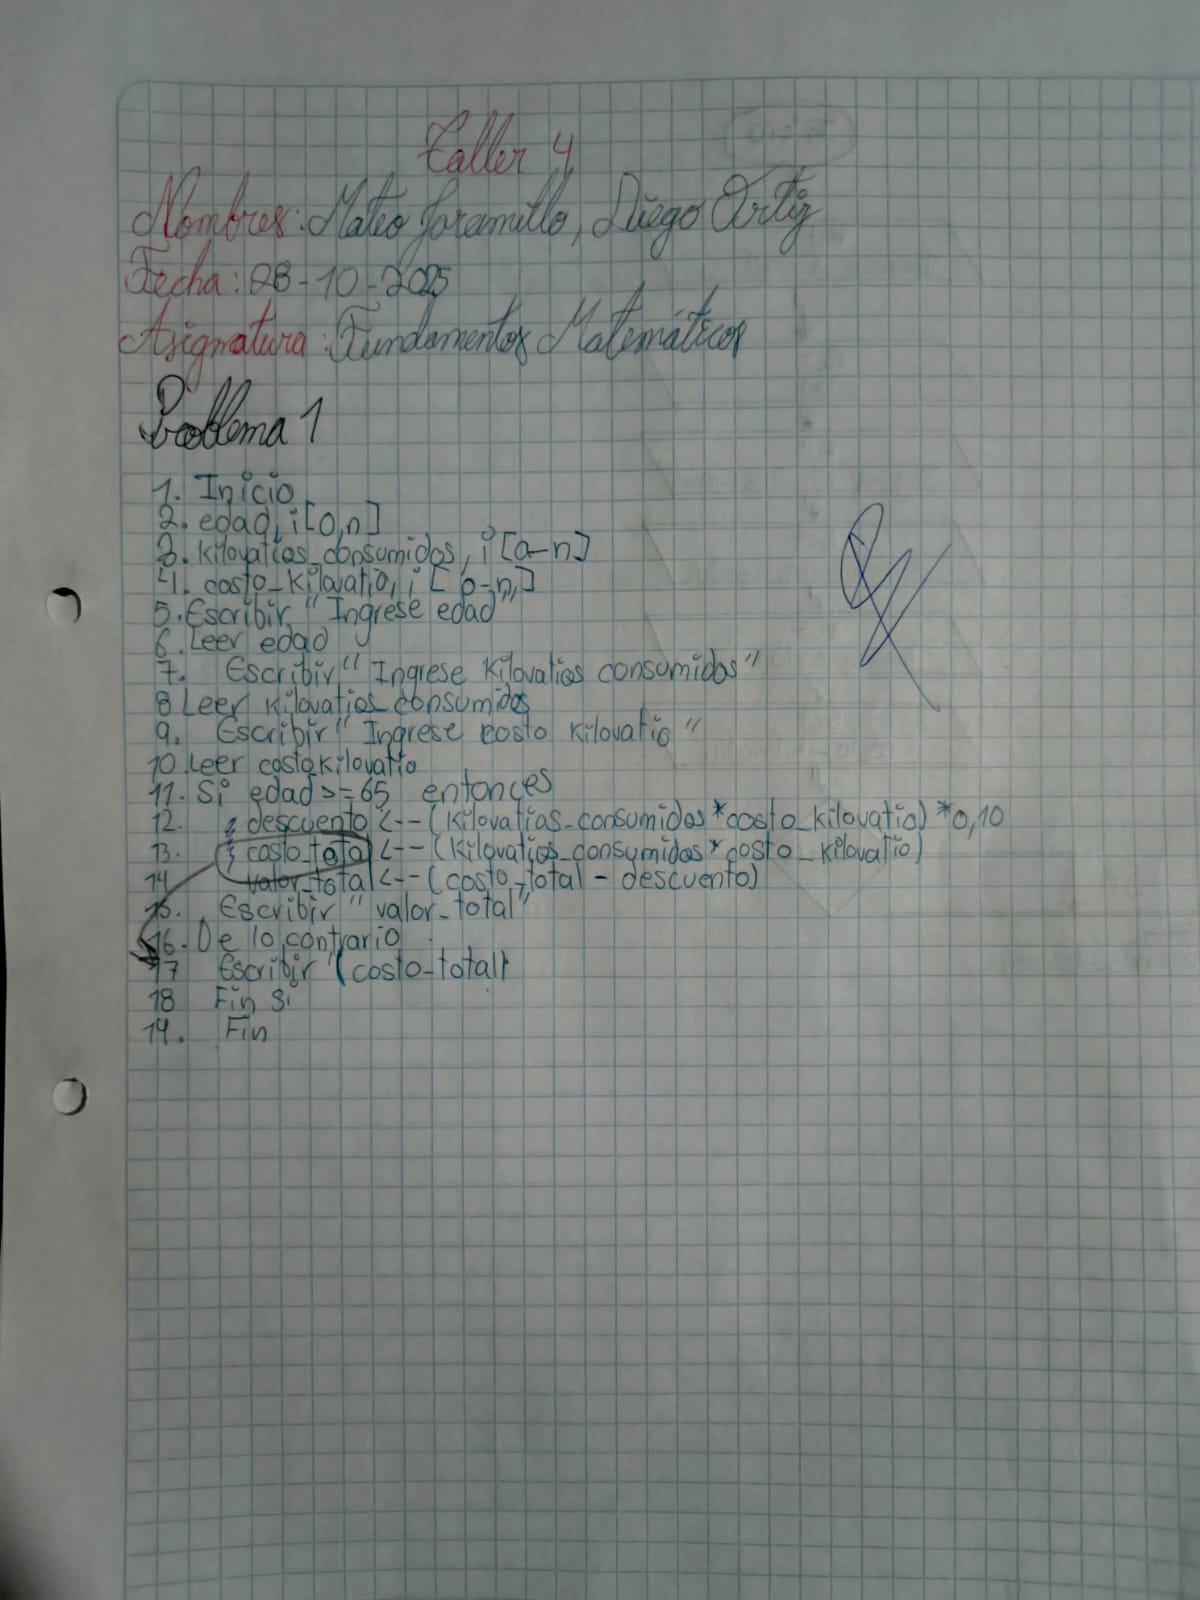 Taller 4
Nombres: Mateo Jaramillo, Diego Ortiz
Fecha: 28-10-2025
Asignatura: Fundamentos Matemáticos
Problema 1
1. Inicio
2. edad, i[0,n]
3. Kilovatios_consumidos, i [a-n]
4. costo_kilovatio, i [ o-n,]
5. Escribir "Ingrese edad"
6. Leer edad
7. Escribir "Ingrese Kilovatios consumidos"
8 Leer Kilovatios_consumidos
9. Escribir "Ingrese costo kilovatio"
10. Leer costo_kilovatio
11. Si edad >= 65 entonces
12. descuento <-- (Kilovatios_consumidos * costo_kilovatio) * 0,10
13. costo_total <-- (Kilovatios_consumidos * costo_kilovatio)
14 valor_total <-- (costo_total - descuento)
15. Escribir "valor_total"
16. De lo contrario
17 Escribir (costo_total)
18 Fin Si
19. Fin